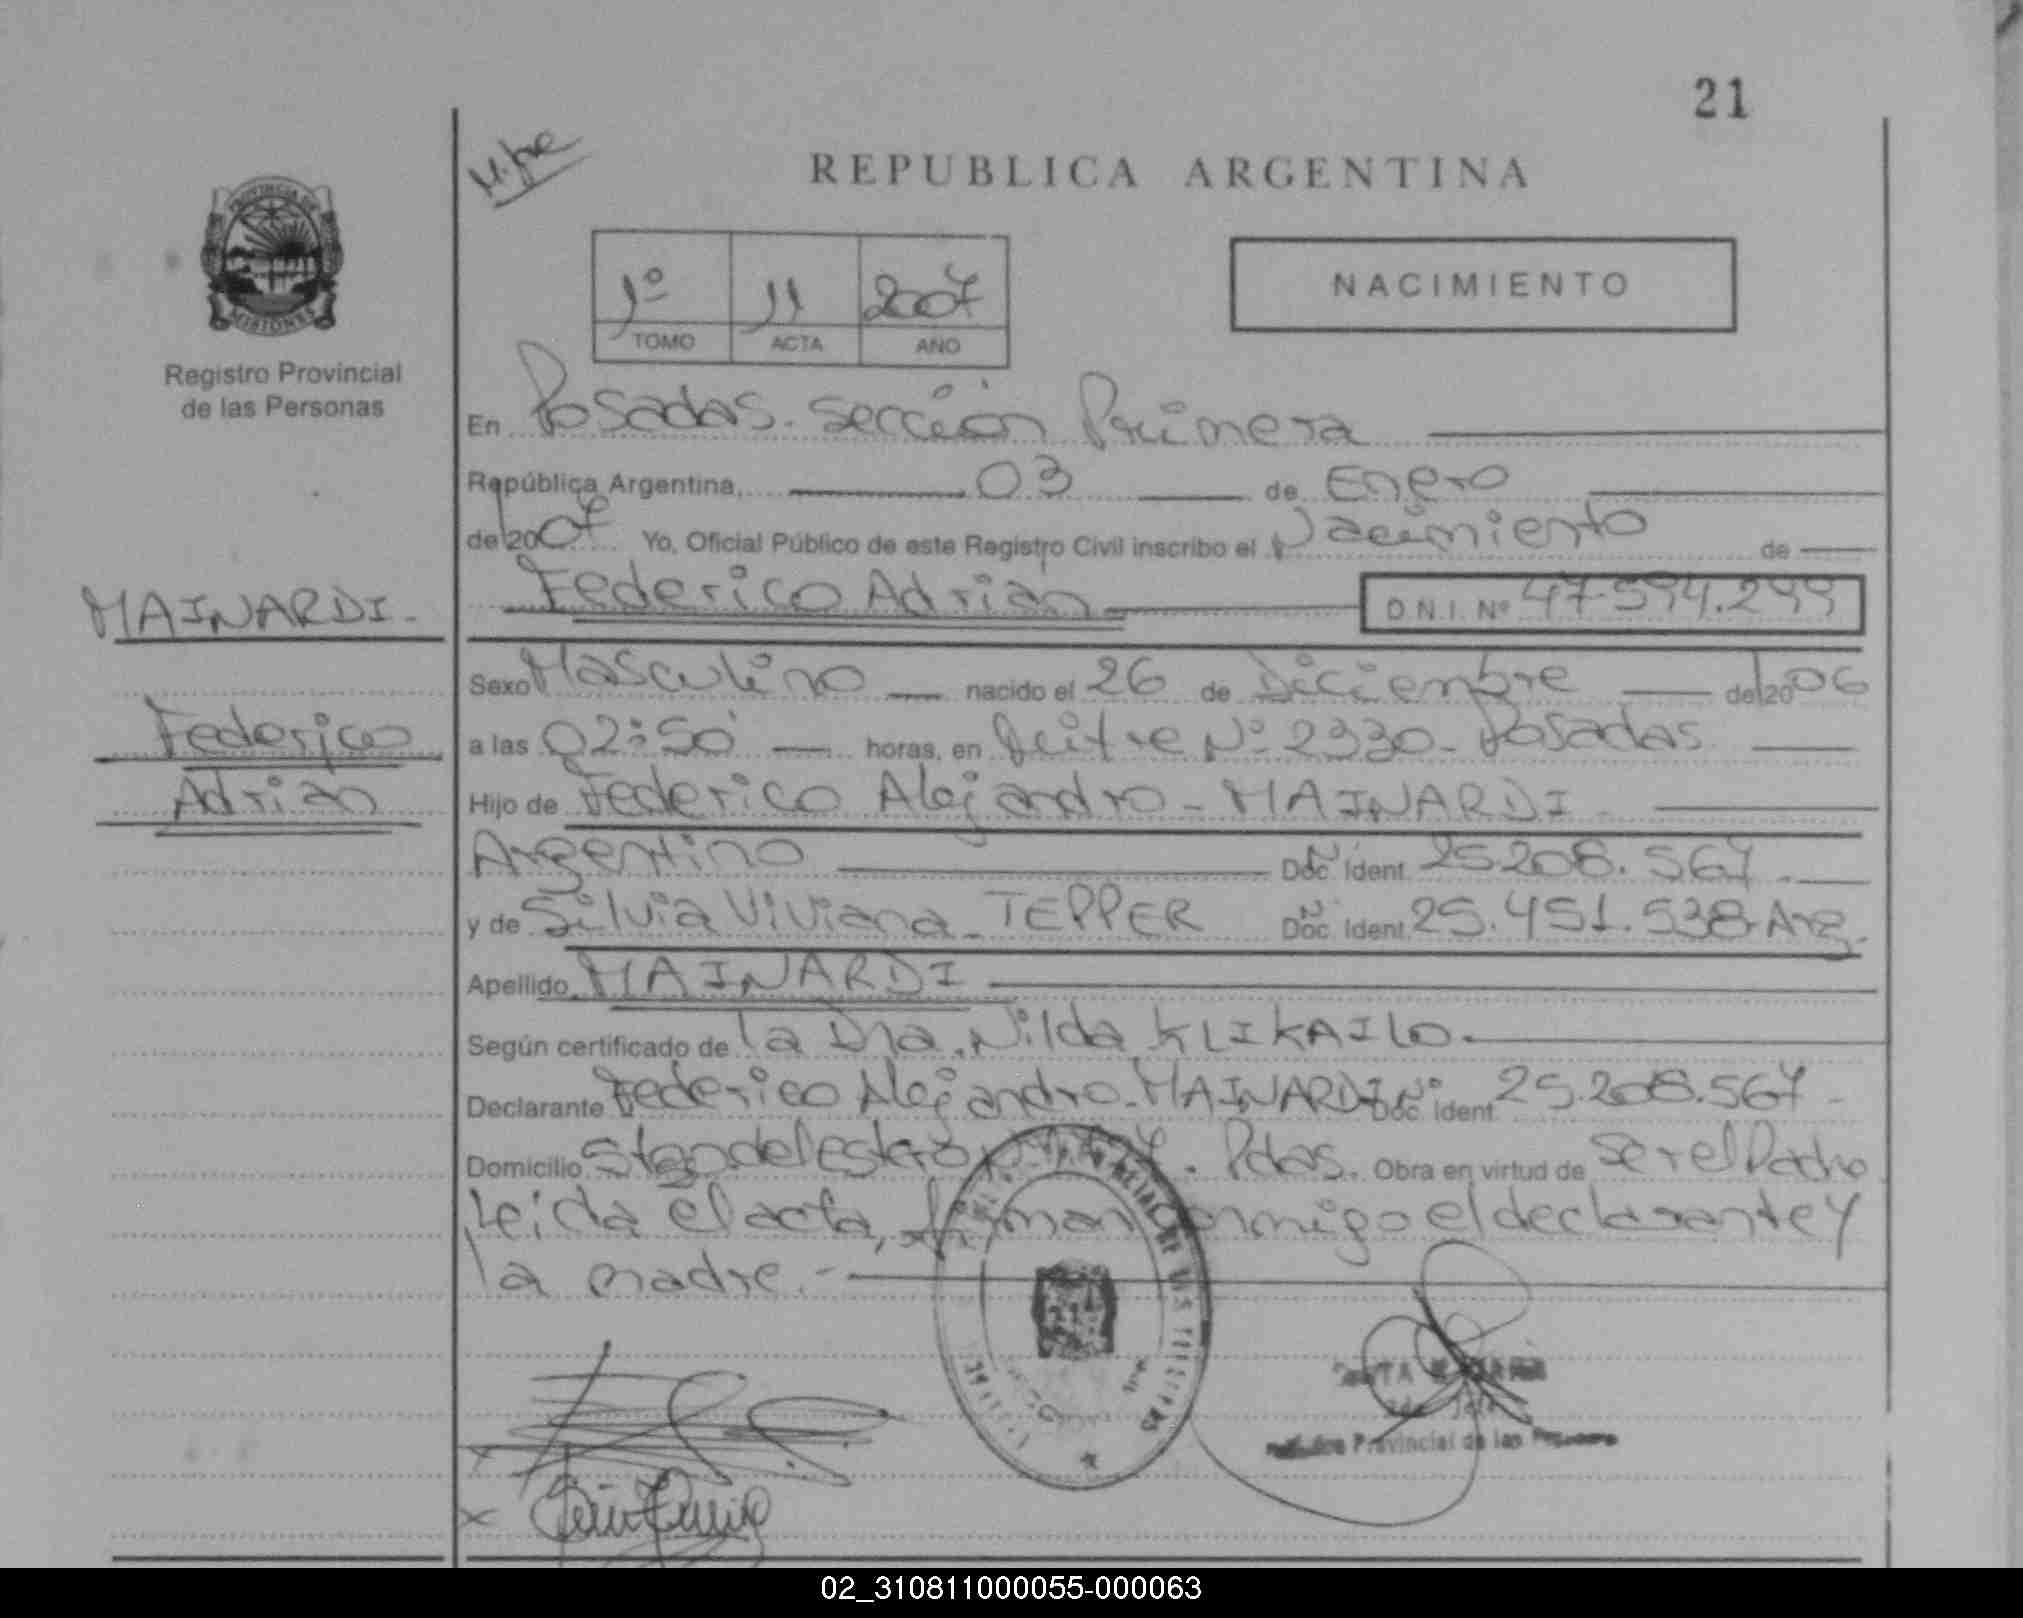 21
REPUBLICA ARGENTINA
PROVINCIA DE
MISIONES
Registro Provincial
de las Personas
1º 11 2007
TOMO ACTA AÑO
NACIMIENTO
En Posadas. Sección Primera
República Argentina, 03 de Enero
de 2007 Yo, Oficial Público de este Registro Civil inscribo el Nacimiento de
Federico Adrián D.N.I. Nº 47.594.299
MAINARDI.
Federico
Adrián
Sexo Masculino nacido el 26 de Diciembre de 2006
a las 02:50 horas, en Mitre Nº 2330 - Posadas
Hijo de Federico Alejandro - MAINARDI
Argentino Doc. Ident. 25.208.567
y de Silvia Viviana - TEPPER Doc. Ident. 25.451.538 - Arg.
Apellido MAINARDI
Según certificado de la Dra. Nilda KLIKAILO.
Declarante Federico Alejandro - MAINARDI Doc. Ident. 25.208.567
Domicilio Stgo. del Estero Pdas. Obra en virtud de ser el Padre
Leída el acta, firman conmigo el declarante y
la madre.-
Provincial de las
02_310811000055-000063